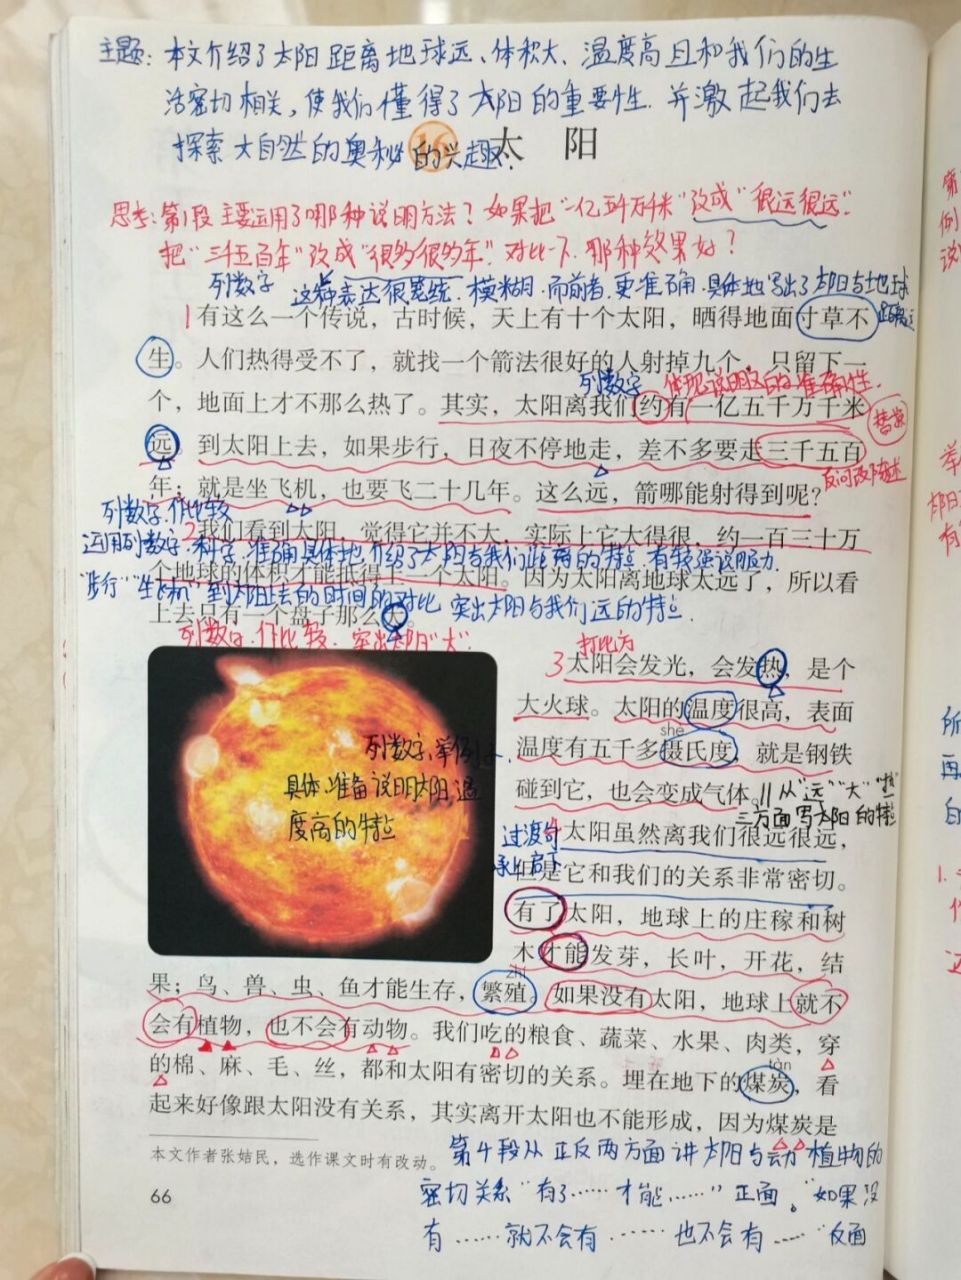 主题：本文介绍了太阳距离地球远、体积大、温度高且和我们的生
活密切相关，使我们懂得了太阳的重要性．并激起我们去
探索大自然的奥秘的兴趣．
16 太 阳
思考：第1段主要运用了哪种说明方法？如果把“一亿五千万千米”改成“很远很远”
把“三千五百年”改成“很多很多年”．对比一下．哪种效果好？
列数字 这种表达很笼统．模糊．而前者．更准确．具体地写出了太阳与地球
1有这么一个传说，古时候，天上有十个太阳，晒得地面寸草不
生。人们热得受不了，就找一个箭法很好的人射掉九个，只留下一
列数字 体现说明文的准确性．
个，地面上才不那么热了。其实，太阳离我们约有一亿五千万千米
远。到太阳上去，如果步行，日夜不停地走，差不多要走三千五百
年；就是坐飞机，也要飞二十几年。这么远，箭哪能射得到呢？
列数字．作比较
2我们看到太阳，觉得它并不大，实际上它大得很，约一百三十万
运用列数字．科学．准确具体地介绍了太阳与我们距离的特点．有较强说服力．
个地球的体积才能抵得上一个太阳。因为太阳离地球太远了，所以看
到太阳上去的时间的对比 突出太阳与我们远的特点．
上去只有一个盘子那么大。
列数字．作比较．突出太阳“大”．
打比方
3太阳会发光，会发热，是个
大火球。太阳的温度很高，表面
shè
温度有五千多摄氏度，就是钢铁
碰到它，也会变成气体。
从“远”“大”“热”
三方面写太阳的特点
列数字．举例子．
具体．准备说明太阳温
度高的特点
过渡句
承上启下
太阳虽然离我们很远很远，
但是它和我们的关系非常密切。
有了太阳，地球上的庄稼和树
木才能发芽，长叶，开花，结
zhí
果；鸟、兽、虫、鱼才能生存，繁殖。如果没有太阳，地球上就不
会有植物，也不会有动物。我们吃的粮食、蔬菜、水果、肉类，穿
tàn
的棉、麻、毛、丝，都和太阳有密切的关系。埋在地下的煤炭，看
起来好像跟太阳没有关系，其实离开太阳也不能形成，因为煤炭是
本文作者张姞民，选作课文时有改动。
66
第4段从正反两方面讲太阳与动植物的
密切关系“有了……才能……”正面。“如果没
有……就不会有……也不会有……”反面